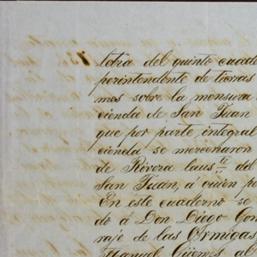 totra del quinto cuade
perintendente de tierras
mas sobre la mensura
cienda de San Juan
que por parte integral
cienda se mercenaron
de Rivera laus.^te del
San Juan, á quien p
En este cuaderno se
do á Don Diego Com
raje de las Ormigas
Manuel Güemes al